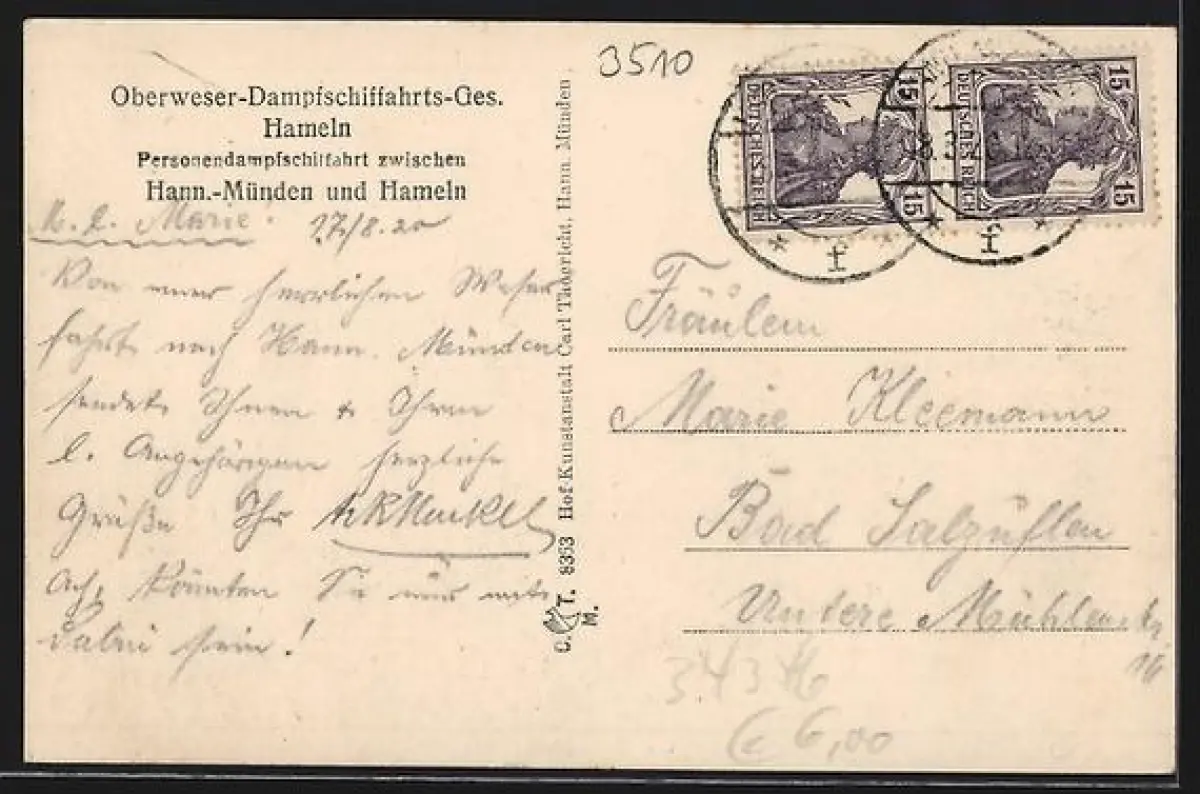 Oberweser-Dampfschiffahrts-Ges.
Hameln
Personendampfschiffahrt zwischen
Hann.-Münden und Hameln
M. l. Marie. 17/8.20
Von einer herrlichen Weser
fahrt nach Hann. Münden
sendet Ihnen & Ihren
l. Angehörigen herzliche
Grüße Ihr
Ach, könnten Sie nur mit
dabei sein!
C. T. M. 8363 Hof-Kunstanstalt Carl Thoericht, Hann. Münden
3510
15 DEUTSCHES REICH 15
15 DEUTSCHES REICH 15
* f *
* f *
Fräulein
Marie Kleemann
Bad Salzuflen
Untere Mühlenstr
16
343
€ 6,00